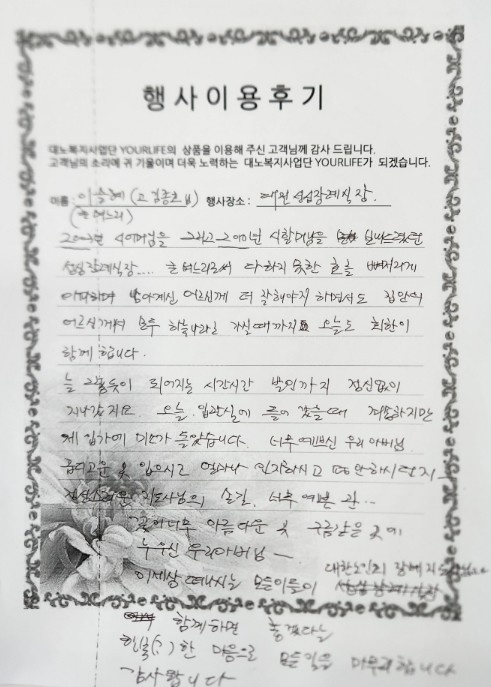 행사이용후기
대노복지사업단 YOURLIFE의 상품을 이용해 주신 고객님께 감사 드립니다.
고객님의 소리에 귀 기울이며 더욱 노력하는 대노복지사업단 YOURLIFE가 되겠습니다.
이름: 이승혜 (고 김종호 님) 행사장소: 대전 성심장례식장.
(큰 며느리)
시어머님을 그리고 시할머님을 보내드렸던
성심장례식장.... 큰 며느리로써 다하지 못한 효를 뼈저리게
아파하며 살아계신 어르신께 더 잘해야지 하면서도 집안의
어르신께서 모두 하늘나라로 가실때까지 오늘도 회한이
함께 합니다.
늘 그렇듯이 되어지는 시간시간 발인까지 정신없이
지나갔지요 오늘. 입관실에 들어 갔을때 죄송하지만
제 입가에 미소가 들었습니다. 너무 예쁘신 우리 아버님
옷 입으시고 얼마나 인자하시고 편안하시던지
지도사님의 손길. 너무 예쁜 관...
꽃이 너무 아름다운 곳 구름같은 곳에
누우신 우리아버님 ―
이세상 떠나시는 모든이들이 대한노인의 장례지도사님과
함께하면 좋겠다는
행복(?)한 마음으로 모든일을 마무리합니다
감사합니다